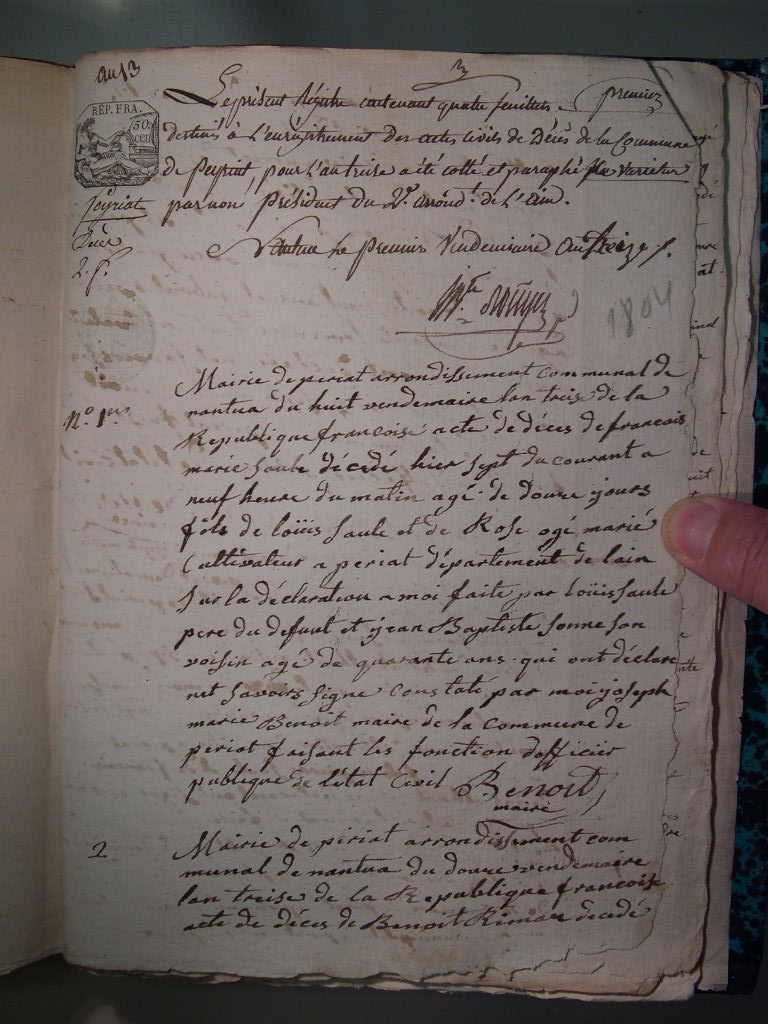 an 13
REP. FRA.
50
cen
Le présent Régistre contenant quatre feuillets. premier
destinés à L'enrégistrement des actes civils de Décès de la Commune
de Peyriat, pour l'an treise a été cotté et paraphé Ne Varietur
par nous, Président du 2e. arrondt. de L'ain.
Jeyriat
Décès
2. f.
Nantua Le Premier Vendemiaire an treize
1804
No. 1er
Mairie de periat arrondissement communal de
nantua du huit vendemaire lan treis de la
Republique francoise acte de déces de francois
marie saule décédé hier sept du courant a
neuf heure du matin agé de douze jours
fils de loüis saule et de Rose ogé marié
Cultivateur a periat département de lain
sur la déclaration a moi faite par loüis saule
pere du defunt et jean Baptiste sonne son
voisin agé de quarante ans qui ont déclare
net savoirs signe constaté par moi joseph
marie Benoit maire de la commune de
periat faisant les fonction dofficier
publique de létat Civil Benoit
maire
2
Mairie de périat arrondissement com
munal de nantua du douze vendemaire
lan treise de la Republique francoise
acte de déces de Benoit Rimaz decedé